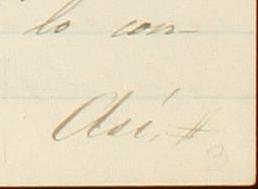 lo con
Así, #
3